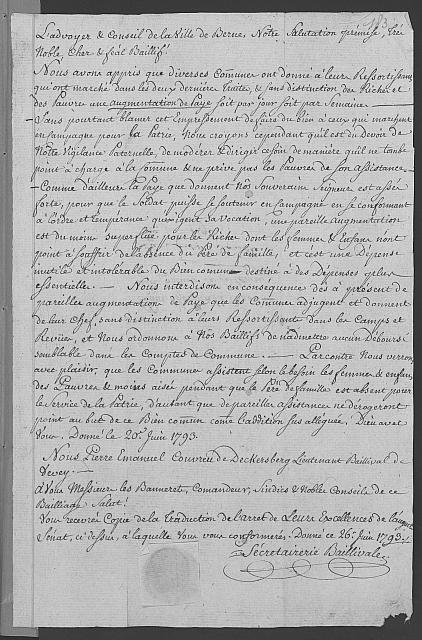 L'advoyer & Conseil de la Ville de Berne, Notre Salutation prémise, tres
Noble, Cher & féal Baillif!
Nous avons appris que diverses Communes ont donné à leur Ressortissans
qui ont marché dans les deux dernière traites, & sans distinction des Riches et
des Pauvre une augmentation de Paye soit par jour soit par Semaine —
Sans pourtant blamer cet Empressement de faire du Bien à ceux qui marchent
en Campagne pour la Patrie, Nous croyons cependant qu'il est du Devoir de
Notre Vigilance Paternelle, de modérer & dirigér a soin de manière qu'il ne tombe
point à charge à la Comune & ne prive pas les Pauvres de son assistance. —
Comme d'ailleurs la Paye que donnent nos Souverains Seigneur est assés
forte, pour que le Soldat puisse se soutenir en Campagne en se conformant
à l'ordre et temperance qu'exigent sa vocation, une pareille augmentation
est du moins superflüe pour les Riches dont les femmes & Enfans n'ont
point à souffrir de l'absence du Pére de famille, et c'est une Dépense
inutile et intolerable du Bien comun destiné à des Dépenses plus
essentielle. — Nous interdisons en consequence dès à présent de
pareilles augmentation de Paye que les Communes adjugent et donnent
de leur Chef, sans distinction à leurs Ressortissants dans les Camps et
Revües, et Nous ordonnons à Nos Baillifs de n'admettre aucun Debours
semblable dans les Comptes de Commune. — Par contre Nous verrons
avec plaisir, que les Communes assistent selon le besoin les femmes & enfans
des Pauvres & moins aisés pendant que le Père de famille est absent pour
le Service de la Patrie, d'autant que de pareilles assistance ne dérogeront
point au but de ce Bien comun come l'addition sus alleguée. Dieu avec
Vous. Donné le 20e Juin 1793.
Nous Pierre Emanuel Couvreu de Deckersberg Lieutenant Baillival de
Vevey. —
à Vous Messieurs les Bannerets, Comandeur, Sindics & Nobles Conseils de ce
Bailliage Salut!
Vous recevrés Copie de la traduction de l'arret de Leurs Excellences de l'august
Sénat, ci dessus, à laquelle Vous vous conformerés. Donné ce 26e Juin 1793.
Sécretairerie Baillivale.